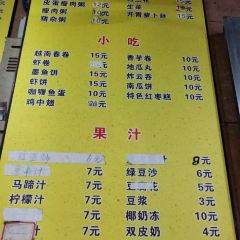 皮蛋瘦肉粥 12元
瘦肉粥 10元
猪杂粥
生菜
开胃萝卜丝
小吃
越南春卷 15元
虾卷 15元
墨鱼饼 15元
虾饼 15元
咖喱鱼蛋 10元
鸡中翅
香芋卷 10元
地瓜丸 10元
炸云吞 10元
南瓜饼 10元
特色红枣糕 10元
果汁
6元
7元
马蹄汁 7元
柠檬汁 7元
汁 7元
8元
绿豆沙 6元
5元
豆浆 3元
椰奶冻 10元
双皮奶 7元